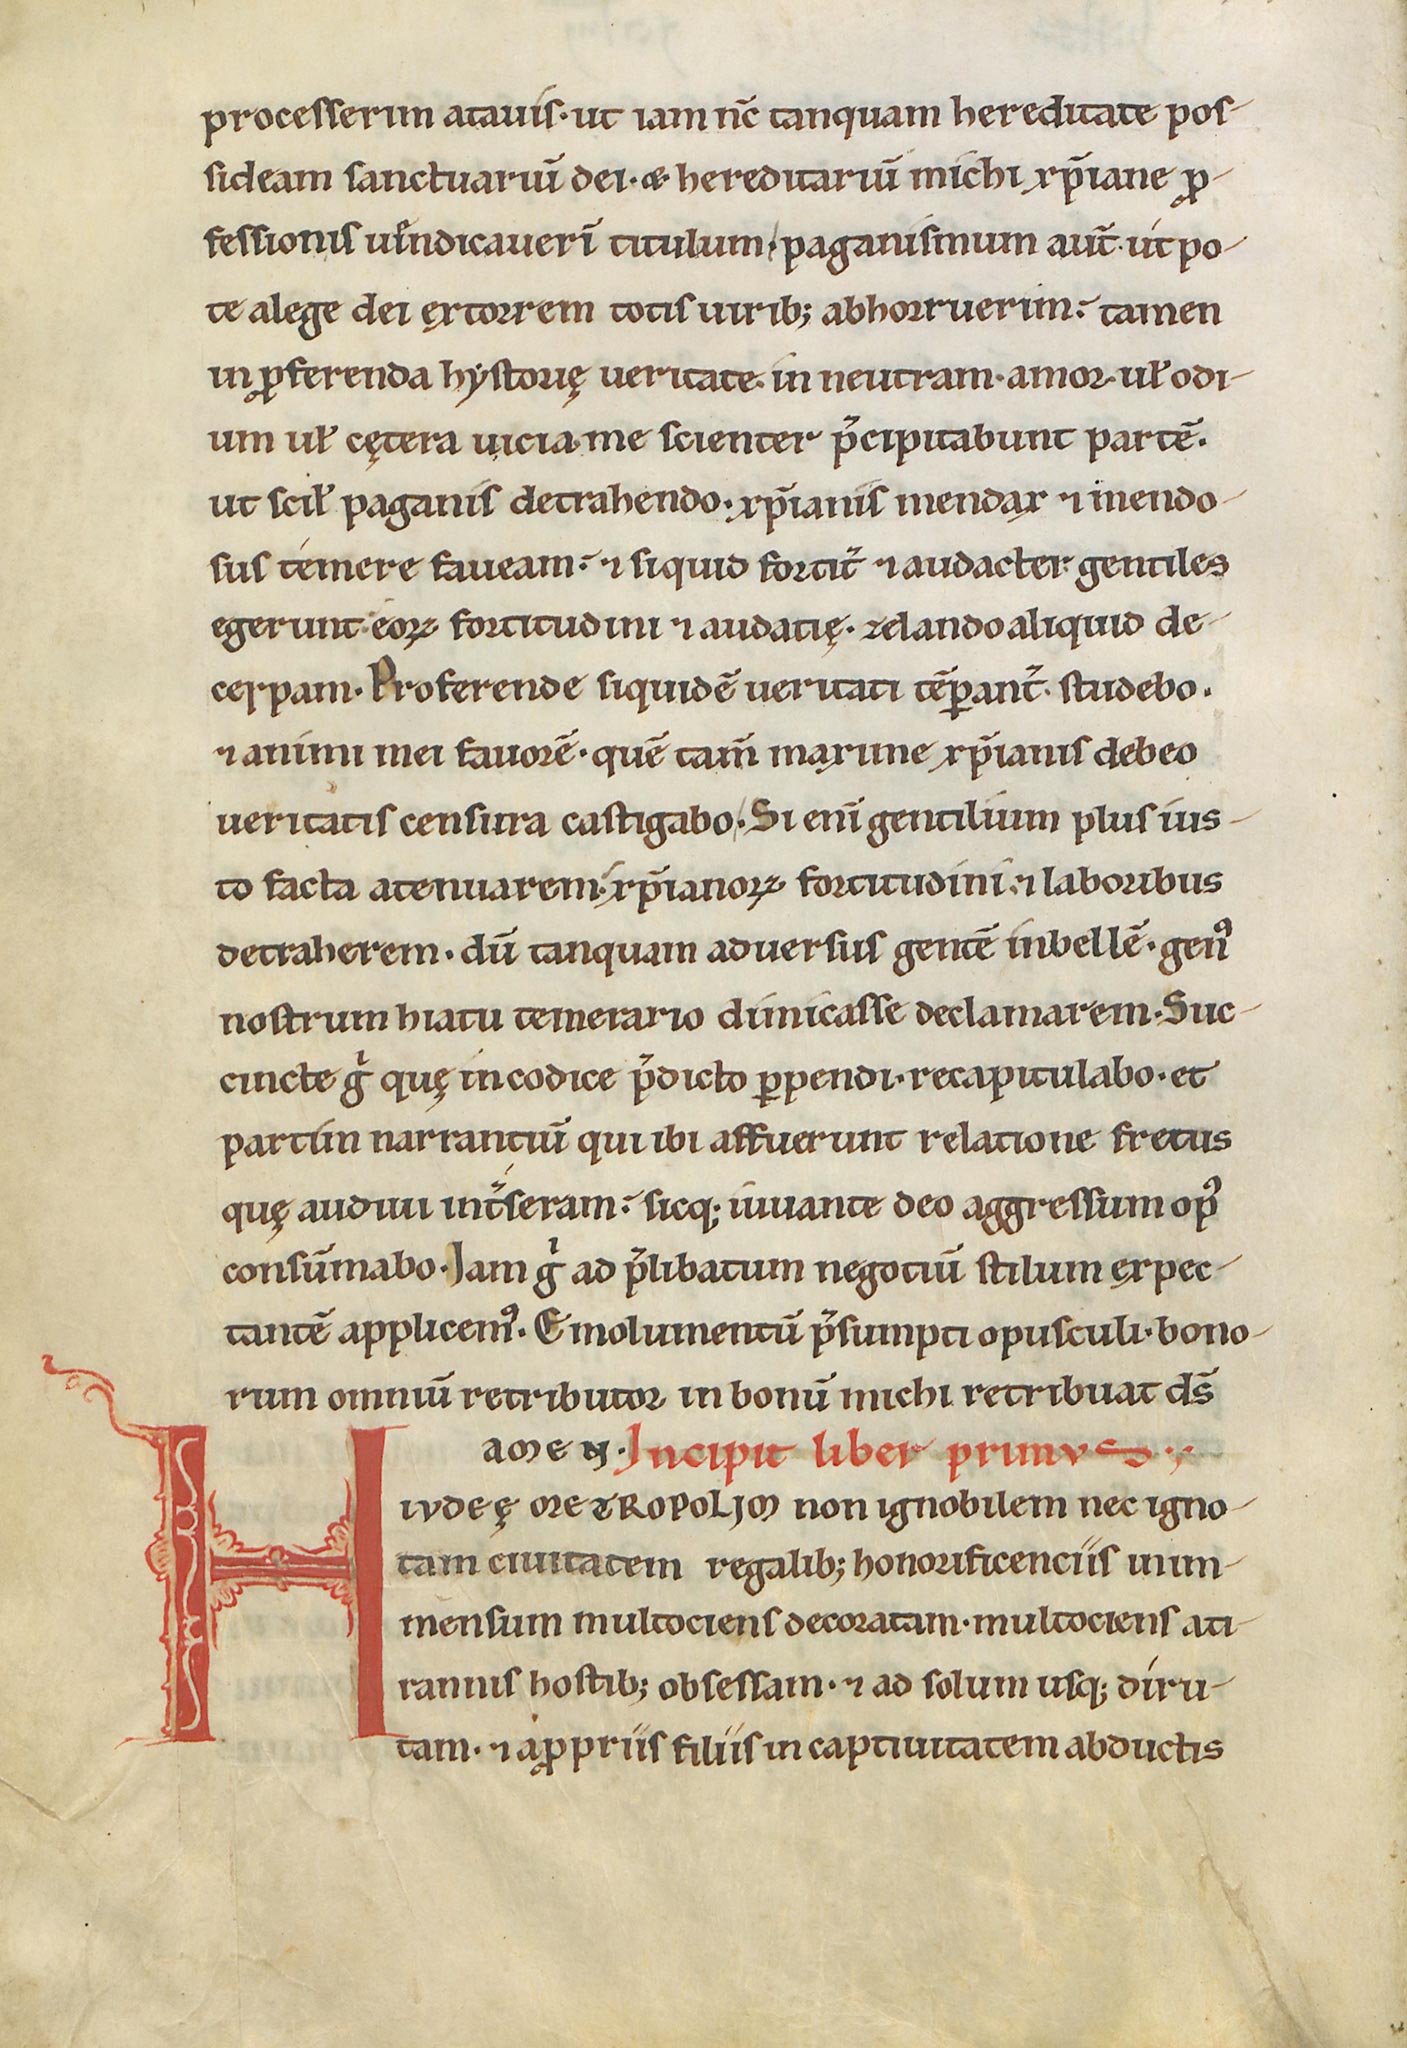 processerim atauis · ut iam nc̄ tanquam hereditate pos-
sideam sanctuariū dei · & hereditariū michi xp̄iane ꝓ-
fessionis uindicauerī titulum, paganismum aut̄ · ut po-
te alege dei ęxtorrem totis uirib; abhorruerim : tamen
in ꝓferenda hystorię ueritate · in neutram · amor · uł odi-
um uł cętera uicia me scienter p̄cipitabunt partē .
ut scił paganis detrahendo · xp̄ianis mendax ⁊ mendo-
sus temere faueam : ⁊ siquid fortit̄ ⁊ audacter gentiles
egerunt eoꝝ fortitudini ⁊ audatię · zelando aliquid de-
cerpam · Proferende siquidē ueritati tēꝑant̄ · studebo .
⁊ animi mei fauorē · quē tam̄ maxime xp̄ianis debeo
ueritatis censura castigabo · Si enī gentilium plus ius-
to facta atenuarem · xp̄ianoꝝ fortitudini · ⁊ laboribus
detraherem · dū tanquam aduersus gentē inbellē · genꝰ
nostrum hiatu temerario dimicasse declamarem · Suc-
cincte gͥ quę in codice p̄dicto ꝑpendi · recapitulabo · et
partim narrantiū qui ibi affuerunt relatione fretus
quę audiui int̄seram : sicq; iuuante deo aggressum opꝰ
consūmabo · Jam gͥ ad p̄libatum negotiū stilum ęxpec-
tantē applicemꝰ · Emolumentū p̄sumpti opusculi · bono-
rum omniū retributor in bonū michi retribuat ds̄
amen · Jncipit liber primus
HIVDEĘ METROPOLJM non ignobilem nec igno-
tam ciuitatem regalib; honorificenciis inim-
mensum multociens decoratam · multociens ati-
rannis hostib; obsessam · ⁊ ad solum usq; diru-
tam · ⁊ aꝓpriis filiis in captiuitatem abductis